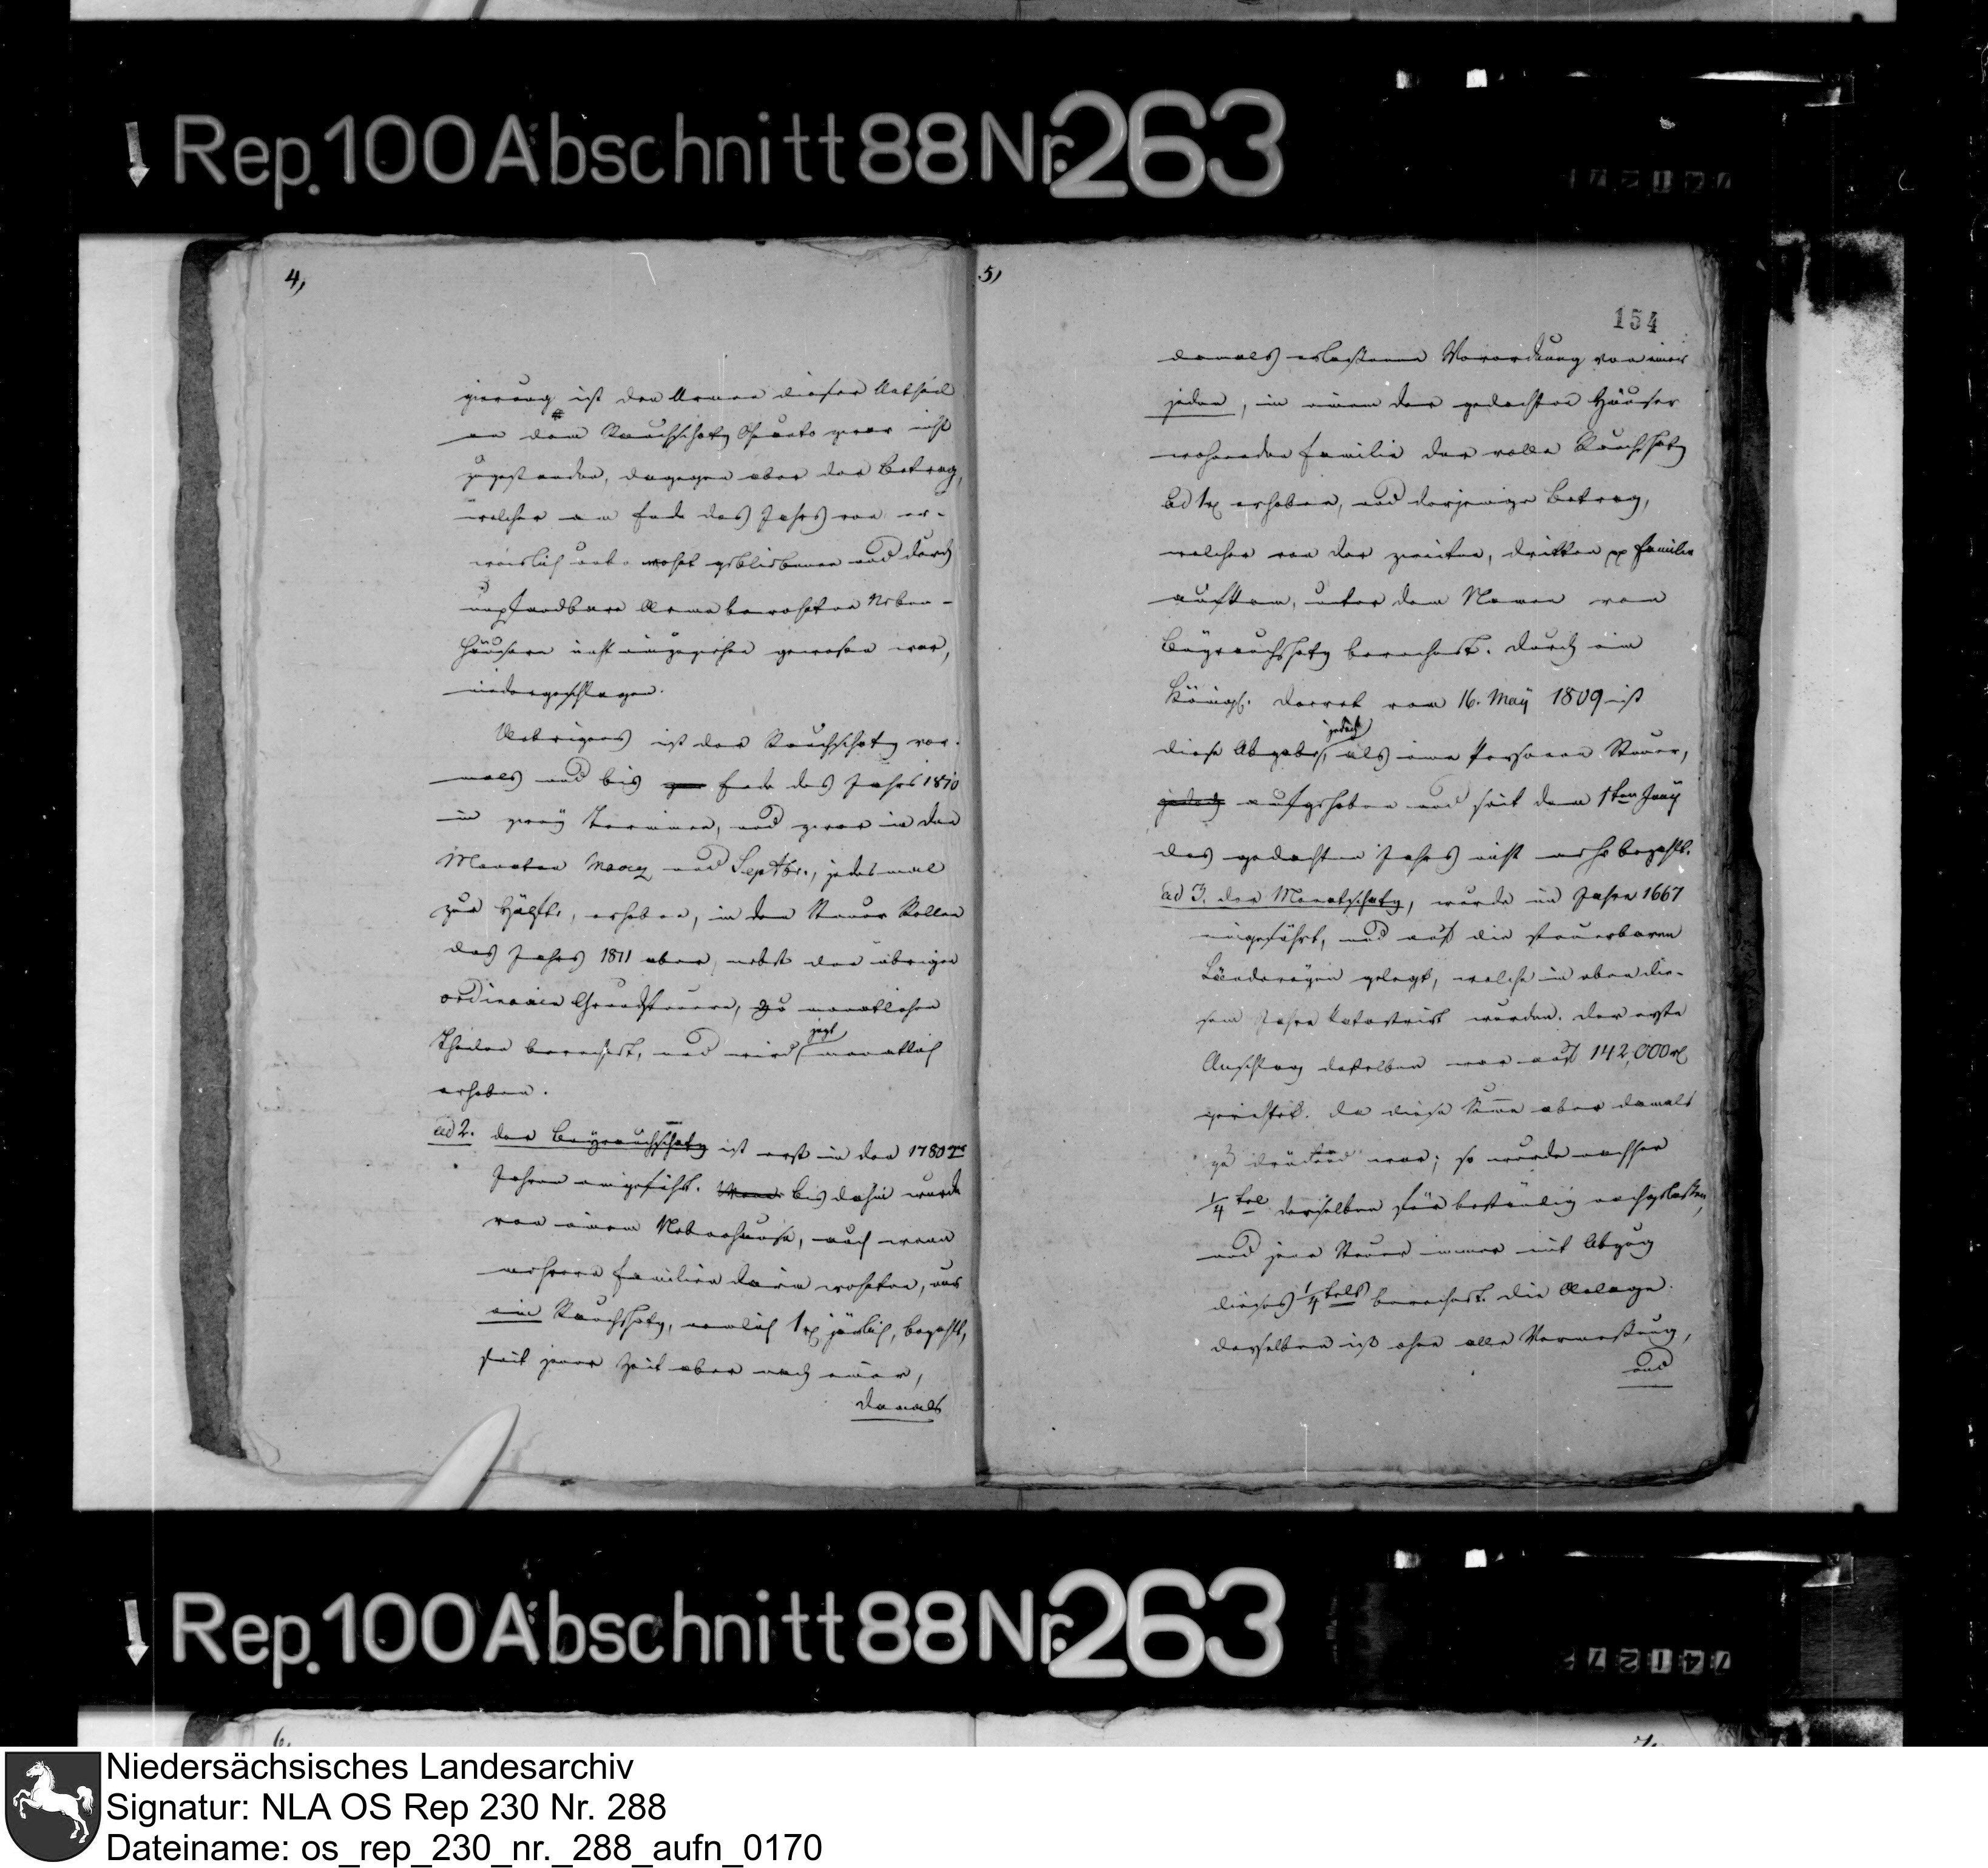 Rep. 100 Abschnitt 88 Nr. 263
4,
gierung ist den Armen dieser Antheil
an dem Rauchschatz Quanto zwar nicht
zugestanden, dagegen aber der Betrag,
welcher am Ende des Jahrs von er-
weislich unbewohnt gebliebenen und durch
unpfandbare Arme bewohnten Neben-
häusern nicht einzuziehen gewesen war,
niedergeschlagen.
Uebrigens ist der Rauchschatz vor-
mals und bis Ende des Jahrs 1810
in zwey Terminen, und zwar in den
Monaten März und Septbr., jedesmal
zur Hälfte, erhoben, in den Steuer Rollen
des Jahrs 1811 aber, nebst den übrigen
ordinairen Grundsteuern, zu monatlichen
Theilen berechnet, und wird jezt monatlich
erhoben.
ad 2. der Beyrauchschatz ist erst in den 1780r
Jahren eingeführt. Bis dahin wurde
von einem Nebenhause, auch wenn
mehrere Familien darin wohnten, nur
ein Rauchschatz, nemlich 1 rt jährlich, bezahlt,
seit jener Zeit aber nach einer,
damals
5,
154
damals erlassenen Verordnung von einer
jeden, in einem der gedachten Häuser
wohnenden Familie der volle Rauchschatz
ad 1 rt erhoben, und derjenige Betrag,
welcher von der zweiten, dritten pp Familie
aufkam, unter dem Namen vom
Beyrauchschatz berechnet. Durch ein
Königl. Decret vom 16. May 1809 ist
jedoch
diese Abgabe, als eine Personen Steuer,
jedoch aufgehoben und seit dem 1ten Juny
des gedachten Jahrs nicht mehr bezahlt.
ad 3. der Monatschatz, wurde im Jahre 1667
eingeführt, und auf die steuerbaren
Ländereyen gelegt, welche in eben die-
sem Jahre katastrirt wurden. Der erste
Anschlag desselben war auf 142,000 rt
gerichtet. Da diese Summe aber damals
zu drückend war; so wurde nachher
1/4 tel derselben für beständig nachgelassen,
und jene Steuer immer mit Abzug
dieses 1/4 tels berechnet. Die Anlage
derselben ist ohne alle Vermessung,
und
Rep. 100 Abschnitt 88 Nr. 263
Niedersächsisches Landesarchiv
Signatur: NLA OS Rep 230 Nr. 288
Dateiname: os_rep_230_nr._288_aufn_0170